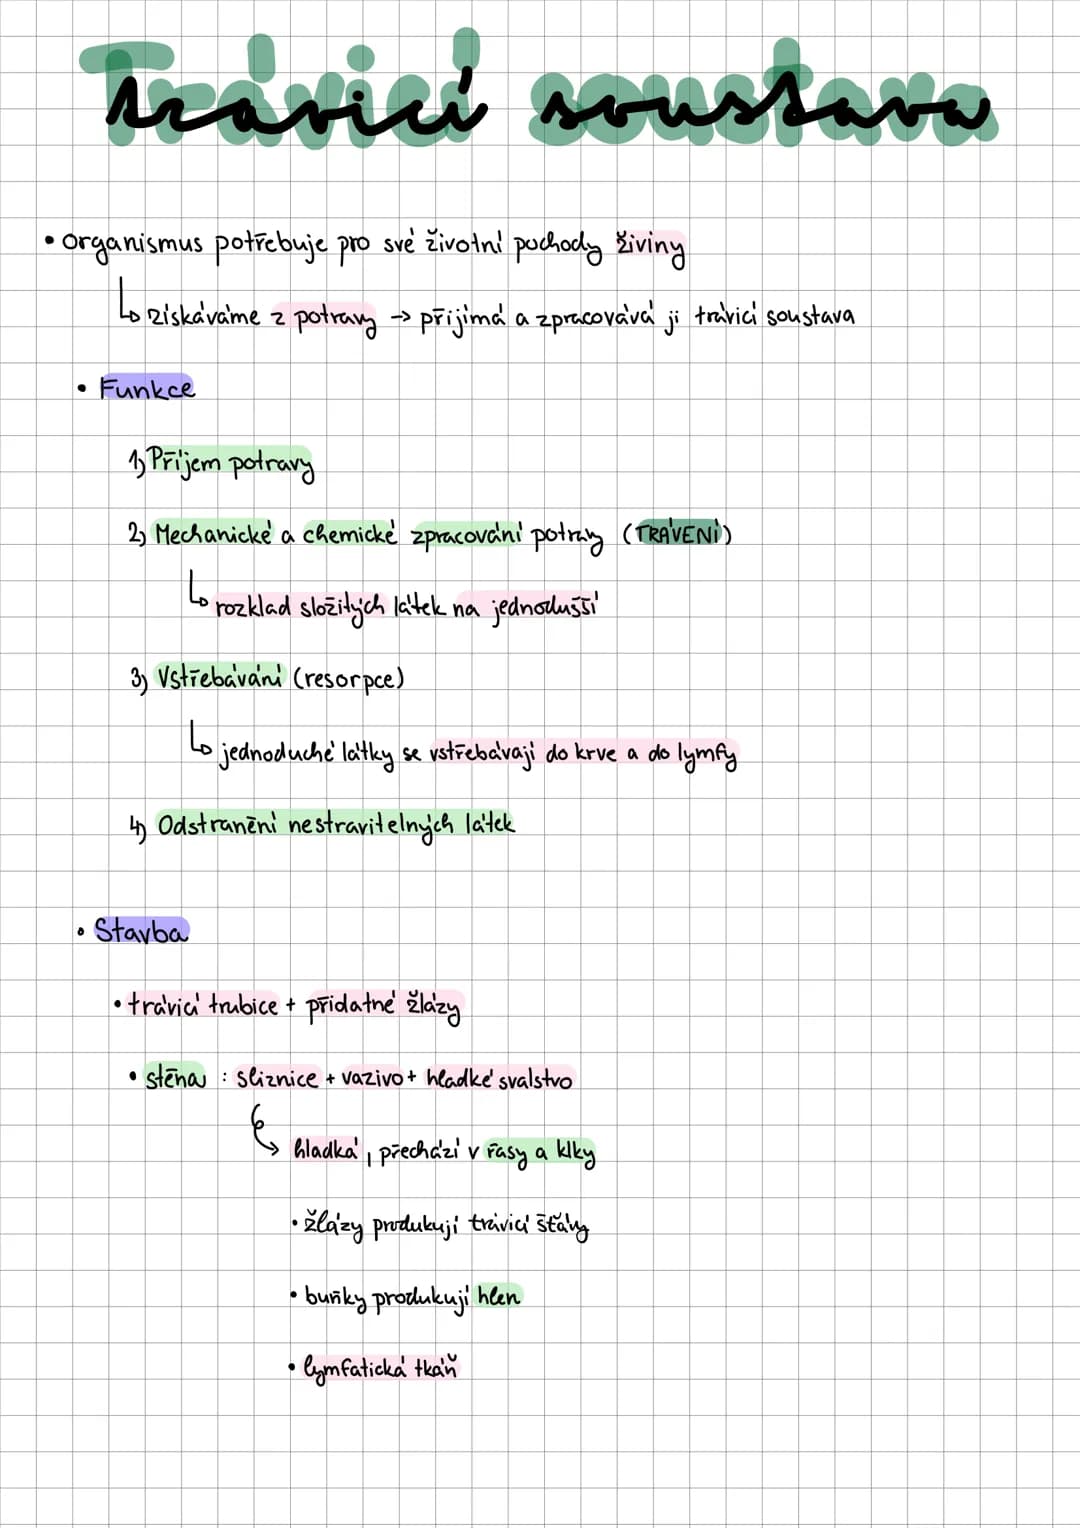 Trávicí soustava
• organismus potřebuje pro své životní pochody živiny
↳ získáváme z potravy → přijímá a zpracovává ji trávicí soustava
• Funkce
1) Příjem potravy
2) Mechanické a chemické zpracování potravy (TRÁVENÍ)
↳ rozklad složitých látek na jednodušší
3) Vstřebávání (resorpce)
↳ jednoduché látky se vstřebávají do krve a do lymfy
4) Odstranění nestravitelných látek
• Stavba
• trávicí trubice + přidatné žlázy
• stěna : sliznice + vazivo + hladké svalstvo
↳ hladká, přechází v řasy a klky
• žlázy produkují trávicí šťávy
• buňky produkují hlen
• lymfatická tkáň